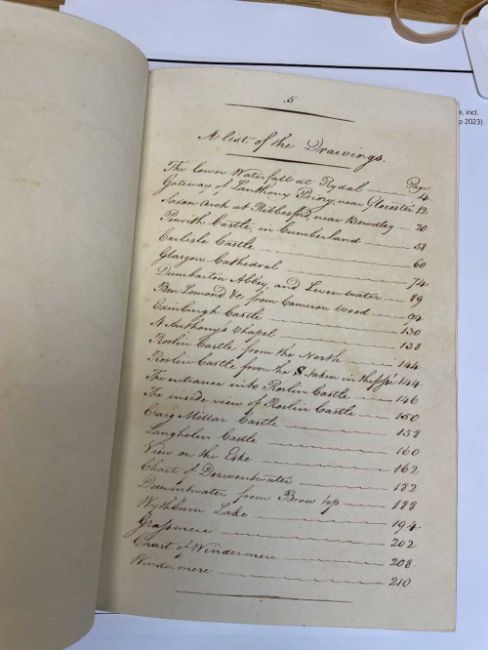 e, incl.
p 2023)
5
A list of the Drawings.
Page
The lower Waterfall at Rydal 4
Gateway of Lanthony Priory, near Glocester 12
Saxon Arch at Ribbesford, near Bewdley 20
Penrith Castle, in Cumberland 58
Carlisle Castle 60
Glasgow Cathedral 74
Dumbarton Abby, and Leven water 89
Ben Lomond &c from Cameron wood 94
Edinburgh Castle 130
St Anthony's Chapel 138
Roslin Castle from the North 144
Roslin Castle from the S taken in 144
The entrance into Roslin Castle 146
The inside view of Roslin Castle 150
Craig Millar Castle 158
Langholm Castle 160
View on the Eske 162
Chart of Derwentwater 182
Derwentwater from Brow top 188
Wythburn Lake 194
Grassmere 202
Chart of Windermere 208
Windermere 210